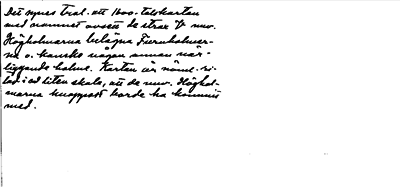 Det synes trol. att 1600-talskartan
med namnet avsett de strax V nuv.
Högholmarna belägna Furuholmar-
na o. kanske någon annan när-
liggande holme. Kartan är näml. ri-
tad i så liten skala, att de nuv. Höghol-
marna knappast borde ha kommit
med.